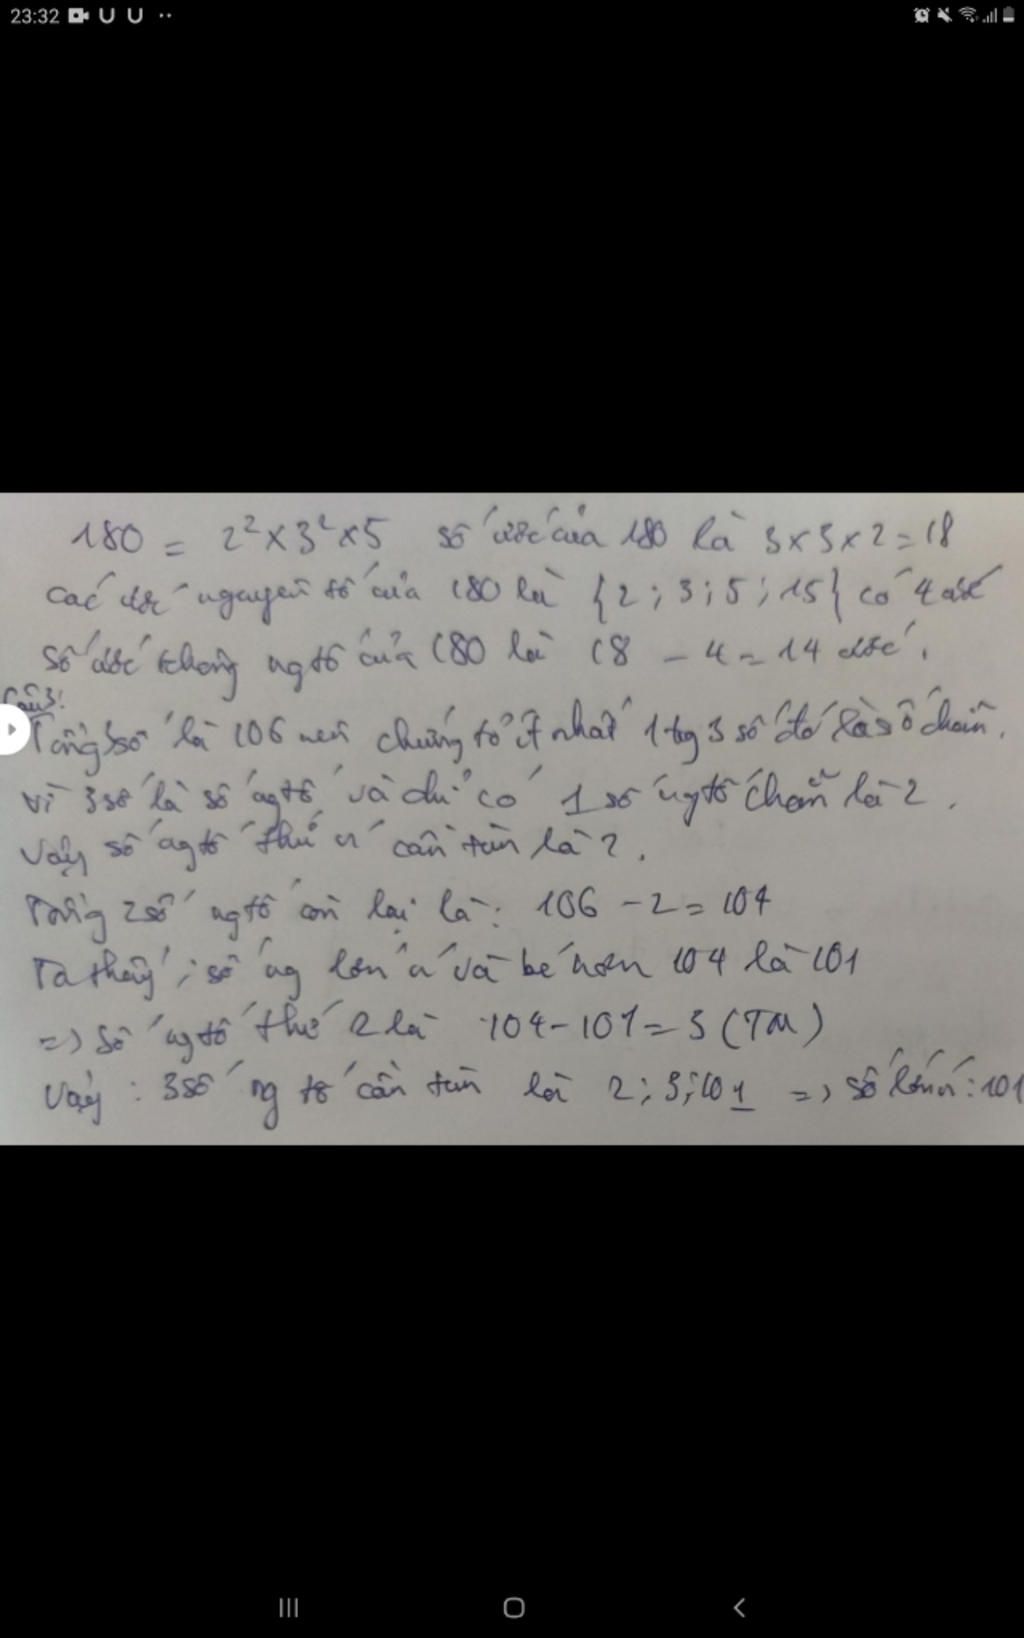 23:32
180 = 2² x 3² x 5 số ước của 180 là 3 x 3 x 2 = 18
các ước nguyên tố của 180 là {2; 3; 5; 15} có 4 ước
số ước không ngtố của 180 là 18 - 4 = 14 ước.
Câu3:
Tổng 3 số là 106 nên chứng tỏ ít nhất 1 tg 3 số đó là số chẵn.
vì 3 số là số ngtố và chỉ có 1 số ngtố chẵn là 2.
Vậy số ngtố thứ n' cần tìm là 2.
Tổng 2 số ngtố còn lại là: 106 - 2 = 104
Ta thấy; số ng lớn n' và bé hơn 104 là 101
=> Số ngtố thứ 2 là 104 - 101 = 3 (TM)
Vậy : 3 số ng tố cần tìm là 2; 3; 101 => số lớn n': 101